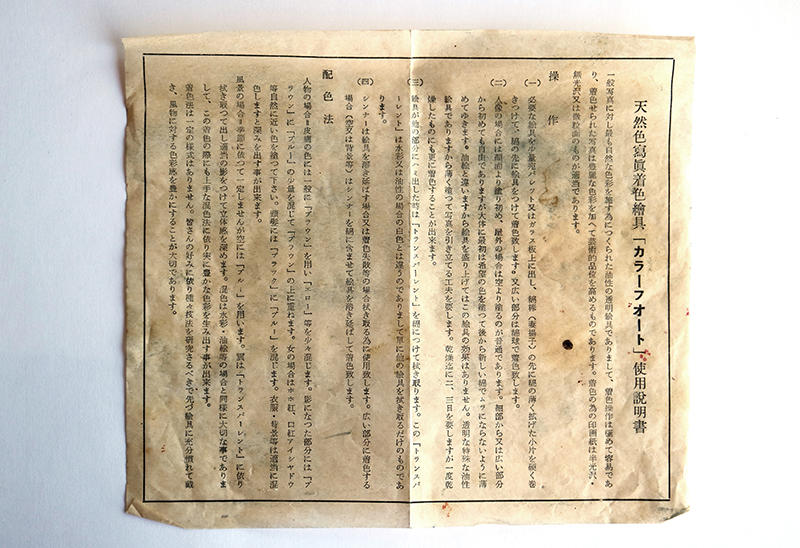 天然色寫眞着色繪具「カラーフオート」使用說明書
一般写真に対し最も自然な色彩を施す為につくられた油性の透明絵具でありまして、着色操作は極めて容易であ
り、着色せられた写真は豊麗な色彩を加へて芸術的品位を高めるものであります。着色の為の印画紙は半光沢・
無光沢又は微粒面のものが適当であります。
操作
(一) 必要な絵具を少量宛パレット又はガラス板上に出し、綿棒(妻揚子)の先に綿の薄く拡げた小片を硬く巻
きつけて、綿の先に絵具をつけて着色致します。又広い部分は綿球で着色致します。
(二) 人像の場合には顔面より塗り初め、屋外の場合は空より塗るのが普通であります。細部から又は広い部分
から初めても自由でありますが大体に最初は希望の色を塗つて後から新しい綿でムラにならないように薄
めてゆきます。油絵と違いますから絵具を盛り上げてはこの絵具の効果はありません。透明な特殊な油性
絵具でありますから薄く塗つて写真を引き立てる工夫を要します。乾燥迄に二、三日を要しますが一度乾
燥したものにも更に着色することが出来ます。
(三) 絵具が他の部分にハミ出した時は「トランスパーレント」を綿につけて拭き取ります。この「トランスパ
ーレント」は水彩又は油性の場合の白色とは違うのでありまして単に他の絵具を拭き取るだけのものであ
ります。
(四) シンナーは絵具を溶き延ばす場合又は着色失敗等の場合拭き取る為に使用致します。広い部分に着色する
場合(空又は背景等)はシンナーを綿に含ませて絵具を溶き延ばして着色致します。
配色法
人物の場合=皮膚の色には一般に「ブラウン」を用い「エロー」等を少々混じます。影になつた部分には「ブ
ラウン」に「ブルー」の少量を混じて「ブラウン」の上に重ねます。女の場合はホホ紅、口紅アイシヤドウ
等自然に近い色を塗つて下さい。頭髪には「ブラック」に「ブルー」を混じます。衣服・背景等は適当に混
色しますと深みを出す事が出来ます。
風景の場合=季節に依つて一定しませんが空には「ブルー」を用います。雲は「トランスパーレント」に依り
拭き取つて出し適当の影をつけて立体感を深めます。混色は水彩・油絵等の場合と同様に大切な事でありま
して、この着色の際にも上手な混色法に依り実に豊かな色彩を生み出す事が出来ます。
着色法は一定の様式はありません。皆さんの好みに依り種々技法を研究さるべきで先づ絵具に充分慣れて戴
き、風物に対する色彩感を豊かにすることが大切であります。